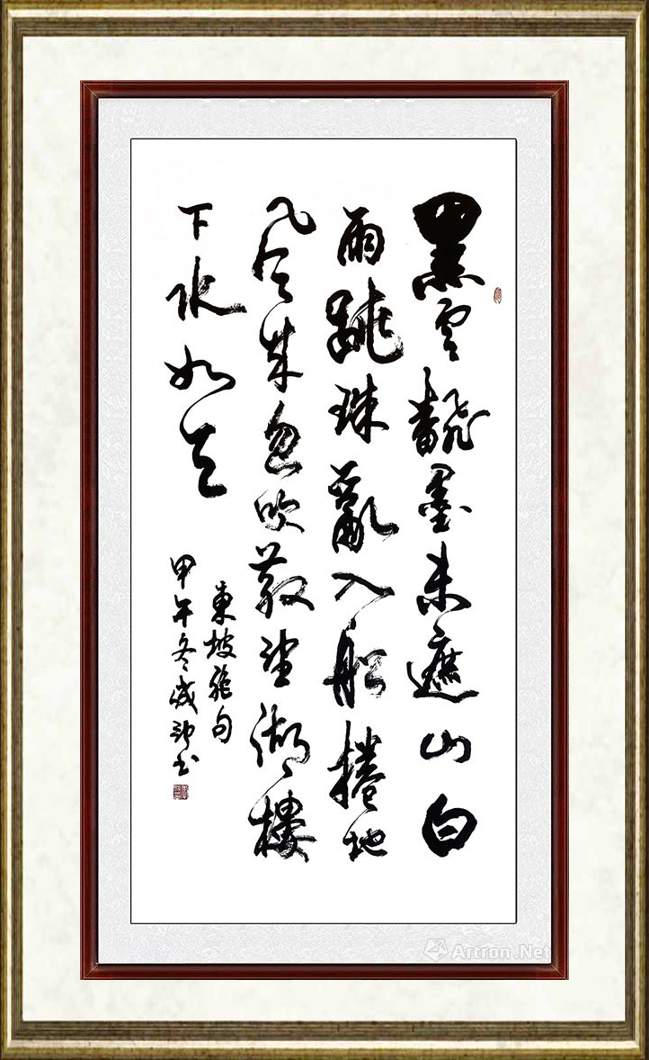 黑雲飜墨未遮山白
雨跳珠亂入船捲地
風来忽吹散望湖樓
下水如天
東坡句
甲午冬书
Artron.Net